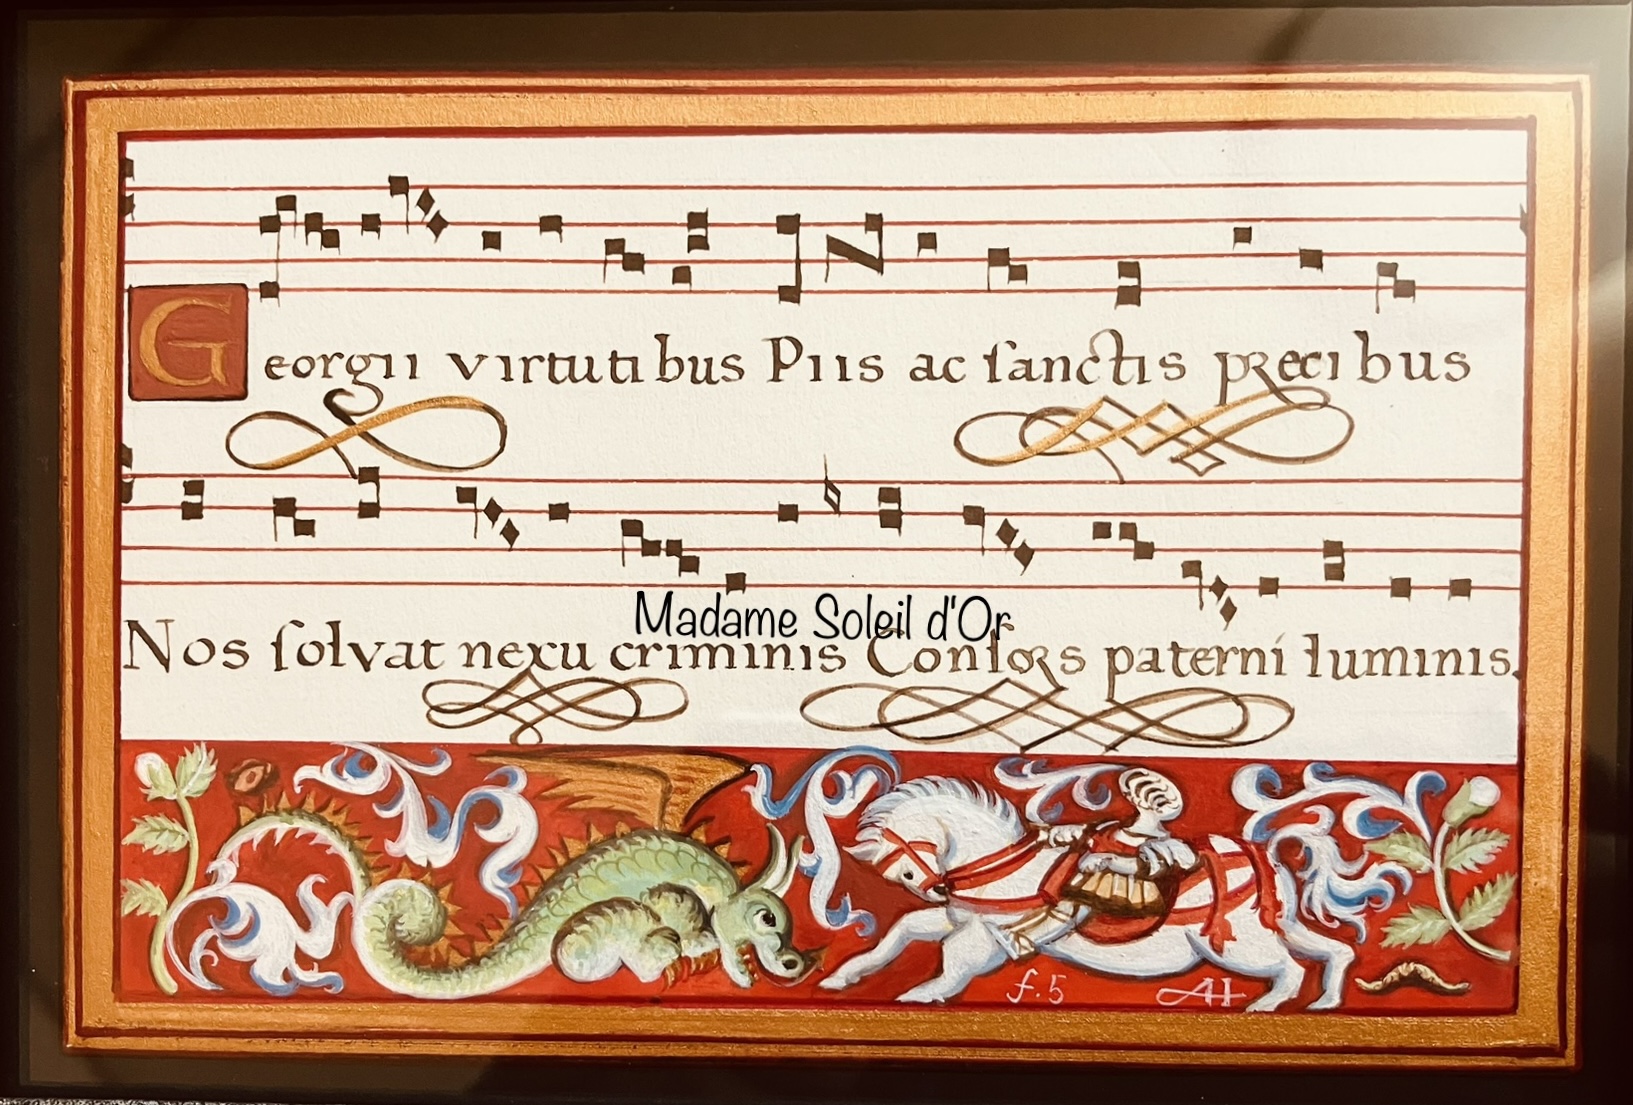 Georgii virtutibus Piis ac ſanctis precibus
Nos ſolvat nexu criminis Conſors paterni luminis.
Madame Soleil d'Or
f.5 AH